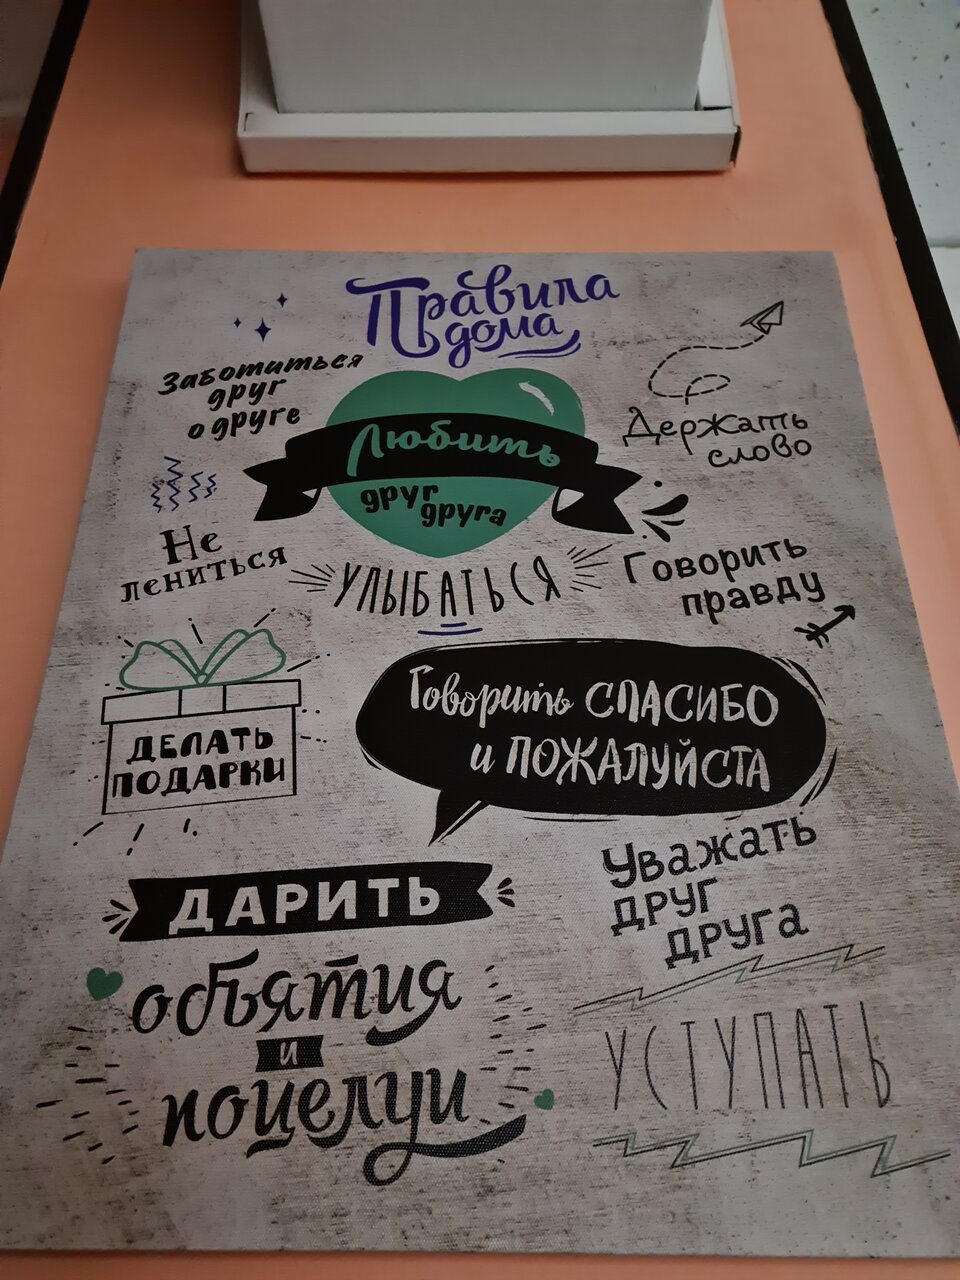 Правила
дома
Заботиться
друг
о друге
Любить
друг
друга
Держать
слово
Не
лениться
УЛЫБАТЬСЯ
Говорить
правду
ДЕЛАТЬ
ПОДАРКИ
Говорить СПАСИБО
и ПОЖАЛУЙСТА
Уважать
друг
друга
ДАРИТЬ
объятия
и
поцелуи
УСТУПАТЬ